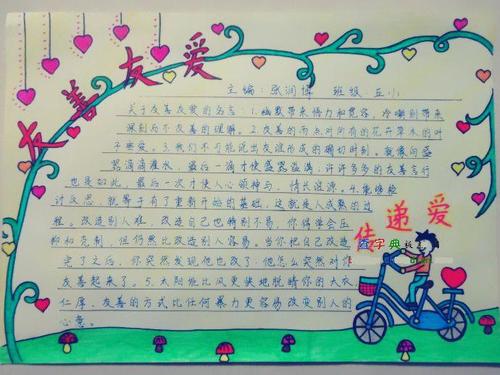 友善友爱
主编:张润博 班级:五小
关于友善友爱的名言:1.幽默带来悟力和宽容,冷嘲则带来
深刻而不友善的理解。2.友善的雨点对所有的花开草木的叶
子亲爱。3.我们不可能说出友谊形成的确切时刻。就像向盛
器滴滴灌水,最后一滴才使盛器溢满,许许多多的友善言行
也是如此,最后一次才使人心领神与,情长谊深。4.能够检
讨反思,就等于有了重新开始的基础,这就是人成熟的过
程。改造别人难,改造自己也特别不易,你得学会压
抑和克制,但仍然比改造别人容易。当你把自己改造
完了之后,你突然发现他也改了,他怎么突然对你
友善起来了。5.太阳能比风更快地脱晴你的大衣
仁厚、友善的方式比任何暴力更容易改变别人的
心意。
传递爱
字典